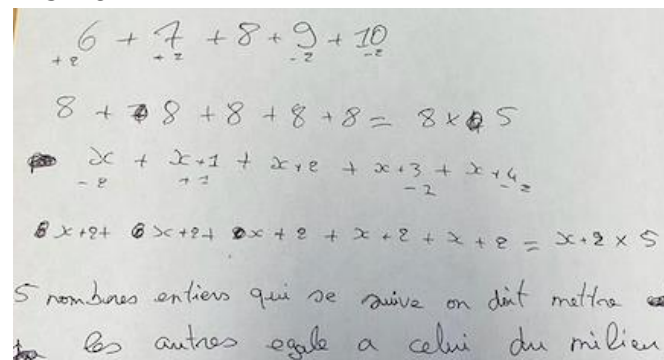 6 + 7 + 8 + 9 + 10
+2 +2 -2 -2
8 + 8 + 8 + 8 + 8 = 8 x 5
x + x+1 + x+2 + x+3 + x+4
-2 +1 -2 -2
x+2+ x+2+ x+2 + x+2 + x+2 = x+2 x 5
5 nombres entiers qui se suive on doit mettre
les autres egale a celui du milieu